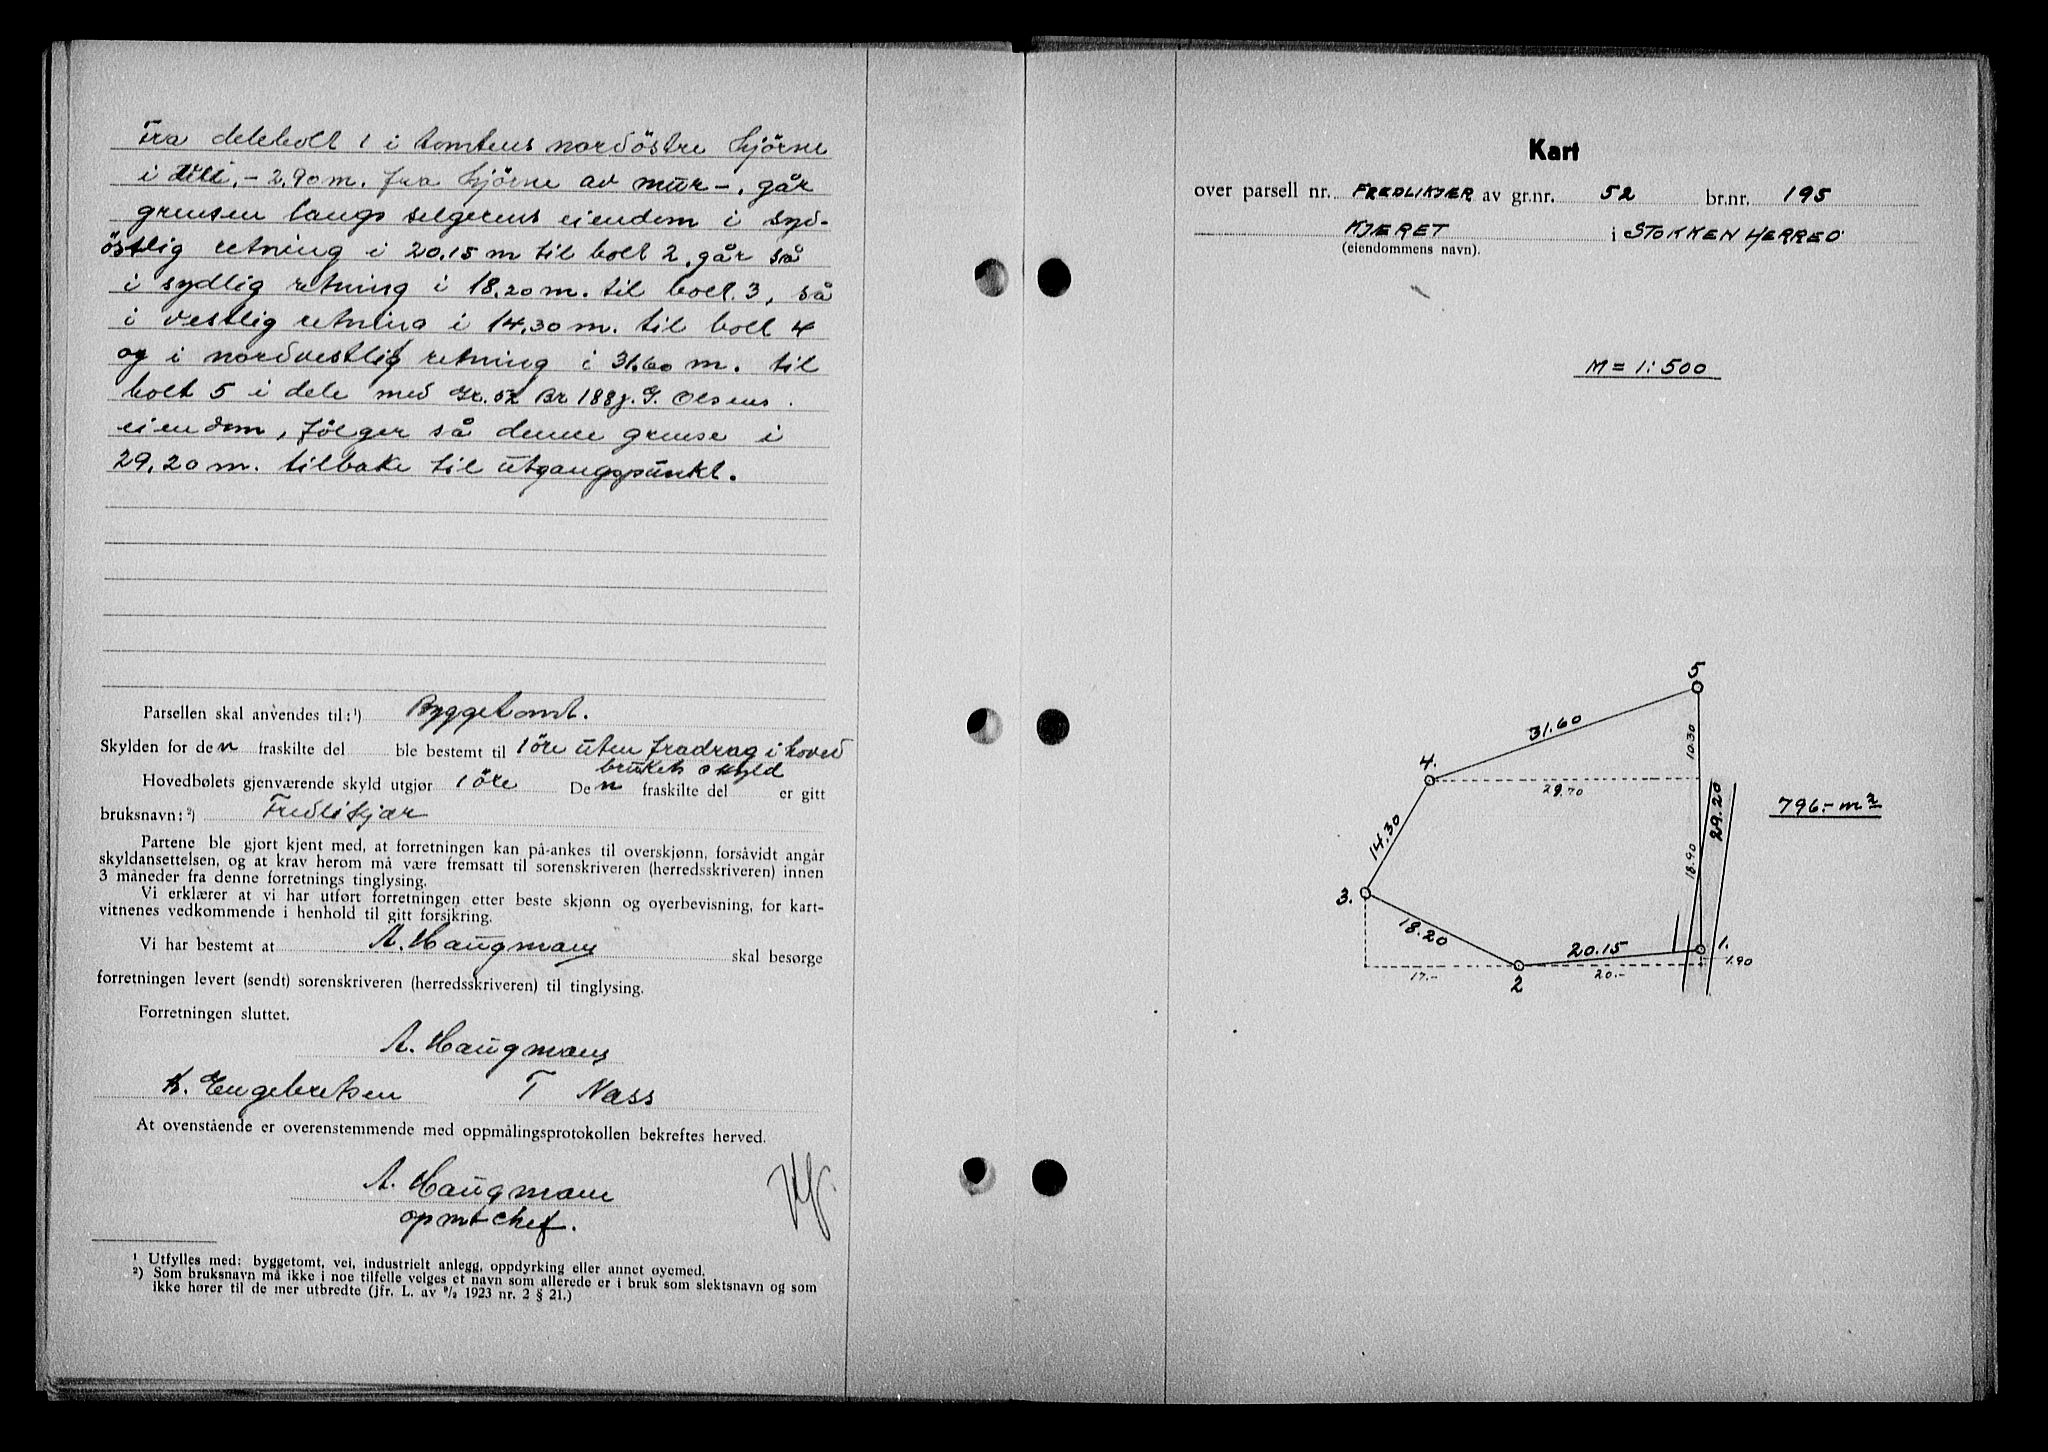 Fra delebolt 1 i tomtens nordöstre hjörne
i dele, - 2,90 m. fra hjörne av mur -, går
grensen langs selgerens eiendom i syd-
östlig retning i 20.15 m til bolt 2, går så
i sydlig retning i 18.20 m. til bolt 3, så
i vestlig retning i 14,30 m. til bolt 4
og i nordvestlig retning i 31.60 m. til
bolt 5 i dele med Gr. 52 Br 188, G. Olsens
eiendom, fölger så denne grense i
29,20 m. tilbake til utgangspunkt.
Parsellen skal anvendes til:¹) Byggetomt.
Skylden for den fraskilte del ble bestemt til 1 öre uten fradrag i hoved
brukets skyld
Hovedbølets gjenværende skyld utgjør 1 öre Den fraskilte del er gitt
bruksnavn:²) Fredlikjær
Partene ble gjort kjent med, at forretningen kan på-ankes til overskjønn, forsåvidt angår
skyldansettelsen, og at krav herom må være fremsatt til sorenskriveren (herredsskriveren) innen
3 måneder fra denne forretnings tinglysing.
Vi erklærer at vi har utført forretningen etter beste skjønn og overbevisning, for kart-
vitnenes vedkommende i henhold til gitt forsikring.
Vi har bestemt at A. Haugmans skal besørge
forretningen levert (sendt) sorenskriveren (herredsskriveren) til tinglysing.
Forretningen sluttet.
A. Haugmans
K. Engebretsen T Næss
At ovenstående er overenstemmende med oppmålingsprotokollen bekreftes herved.
A. Haugmans
opmtchef.
¹ Utfylles med: byggetomt, vei, industrielt anlegg, oppdyrking eller annet øyemed.
²) Som bruksnavn må ikke i noe tilfelle velges et navn som allerede er i bruk som slektsnavn og som
ikke hører til de mer utbredte (jfr. L. av ⁹/₂ 1923 nr. 2 § 21.)
Kart
over parsell nr. FREDLIKJÆR av gr.nr. 52 br.nr. 195
KJÆRET i STOKKEN HERRED
(eiendommens navn).
M = 1:500
5
31.60
10.30
4.
29.70
29.20
796.- m²
14.30
18.90
3.
18.20
20.15
1.
1.90
17.-
2
20.-